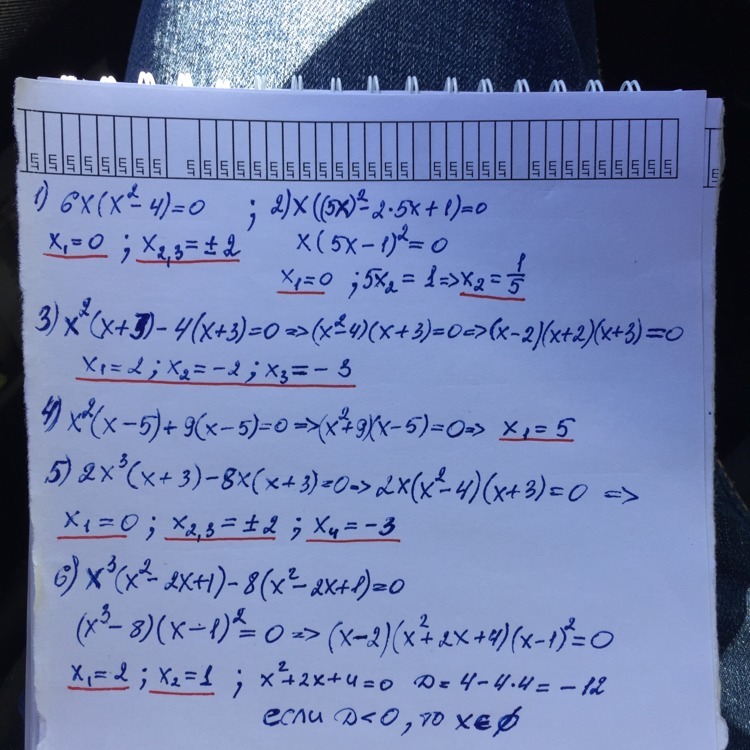 1) 6x(x²-4)=0 ; 2) x((5x)²-2·5x+1)=0
x₁=0 ; x₂,₃=±2 x(5x-1)²=0
x₁=0 ; 5x₂=1=>x₂=1/5
3) x²(x+3)-4(x+3)=0=>(x²-4)(x+3)=0=>(x-2)(x+2)(x+3)=0
x₁=2 ; x₂=-2 ; x₃=-3
4) x²(x-5)+9(x-5)=0=>(x²+9)(x-5)=0=> x₁=5
5) 2x³(x+3)-8x(x+3)=0=>2x(x²-4)(x+3)=0 =>
x₁=0 ; x₂,₃=±2 ; x₄=-3
6) x³(x²-2x+1)-8(x²-2x+1)=0
(x³-8)(x-1)²=0 => (x-2)(x²+2x+4)(x-1)²=0
x₁=2 ; x₂=1 ; x²+2x+4=0 D=4-4·4=-12
если D<0, то x∈ϕ